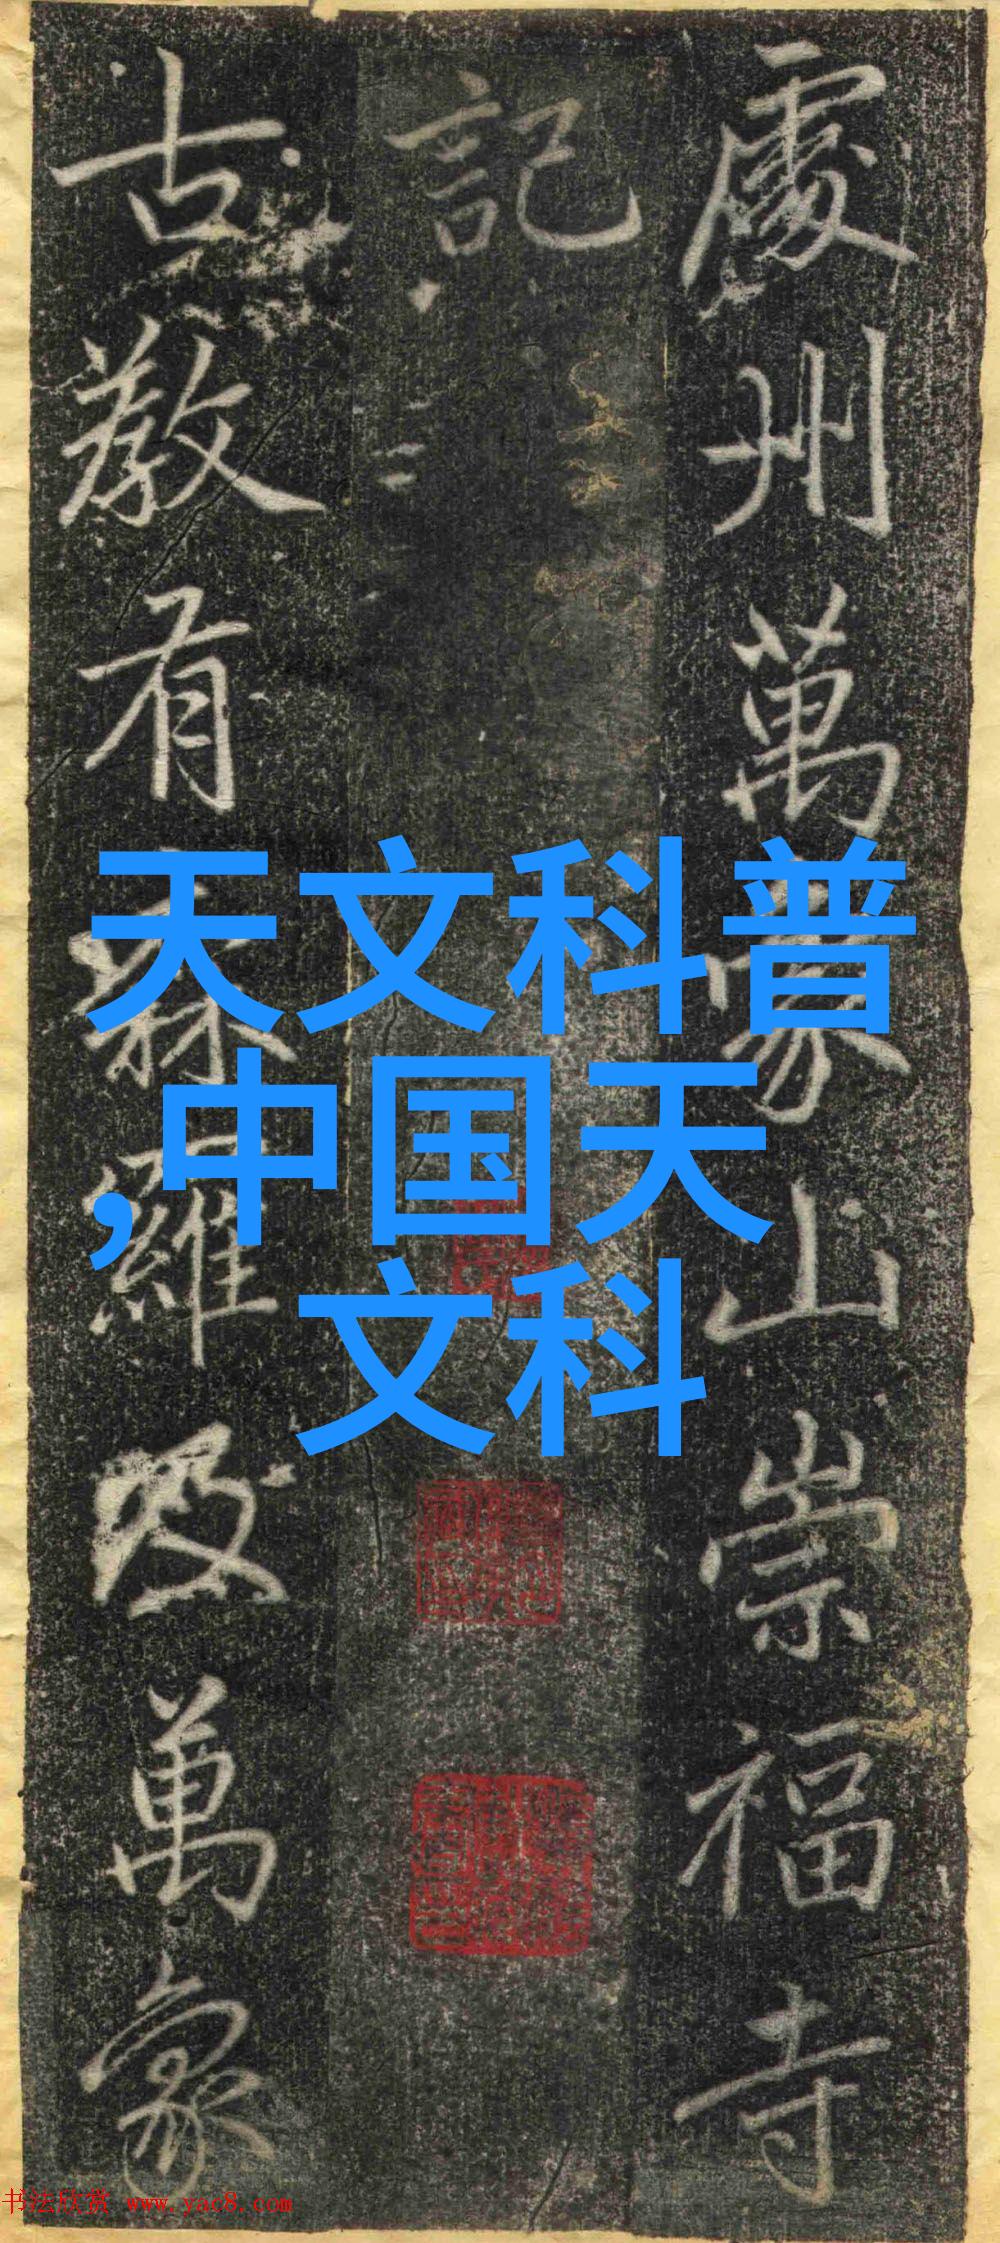 處州萬象山崇福寺
記
古教有森羅及萬象
天文科普
,中国天
文科
书法欣赏 www.yac8.com